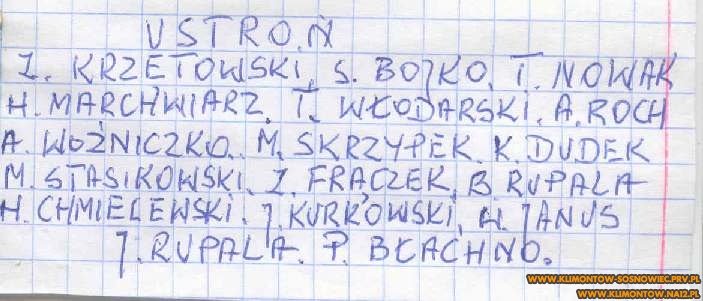 USTROŃ
Z. KRZETOWSKI, S. BOJKO, T. NOWAK
H. MARCHWIARZ, T. WŁODARSKI, A. ROCH
A. WOŹNICZKO, M. SKRZYPEK, K. DUDEK
M. STASIKOWSKI, Z. FRĄCZEK, B. RUPALA
H. CHMIELEWSKI, J. KURKOWSKI, H. JANUS
J. RUPALA, P. BŁACHNO.
WWW.KLIMONTOW-SOSNOWIEC.PRV.PL
WWW.KLIMONTOW.NA12.PL